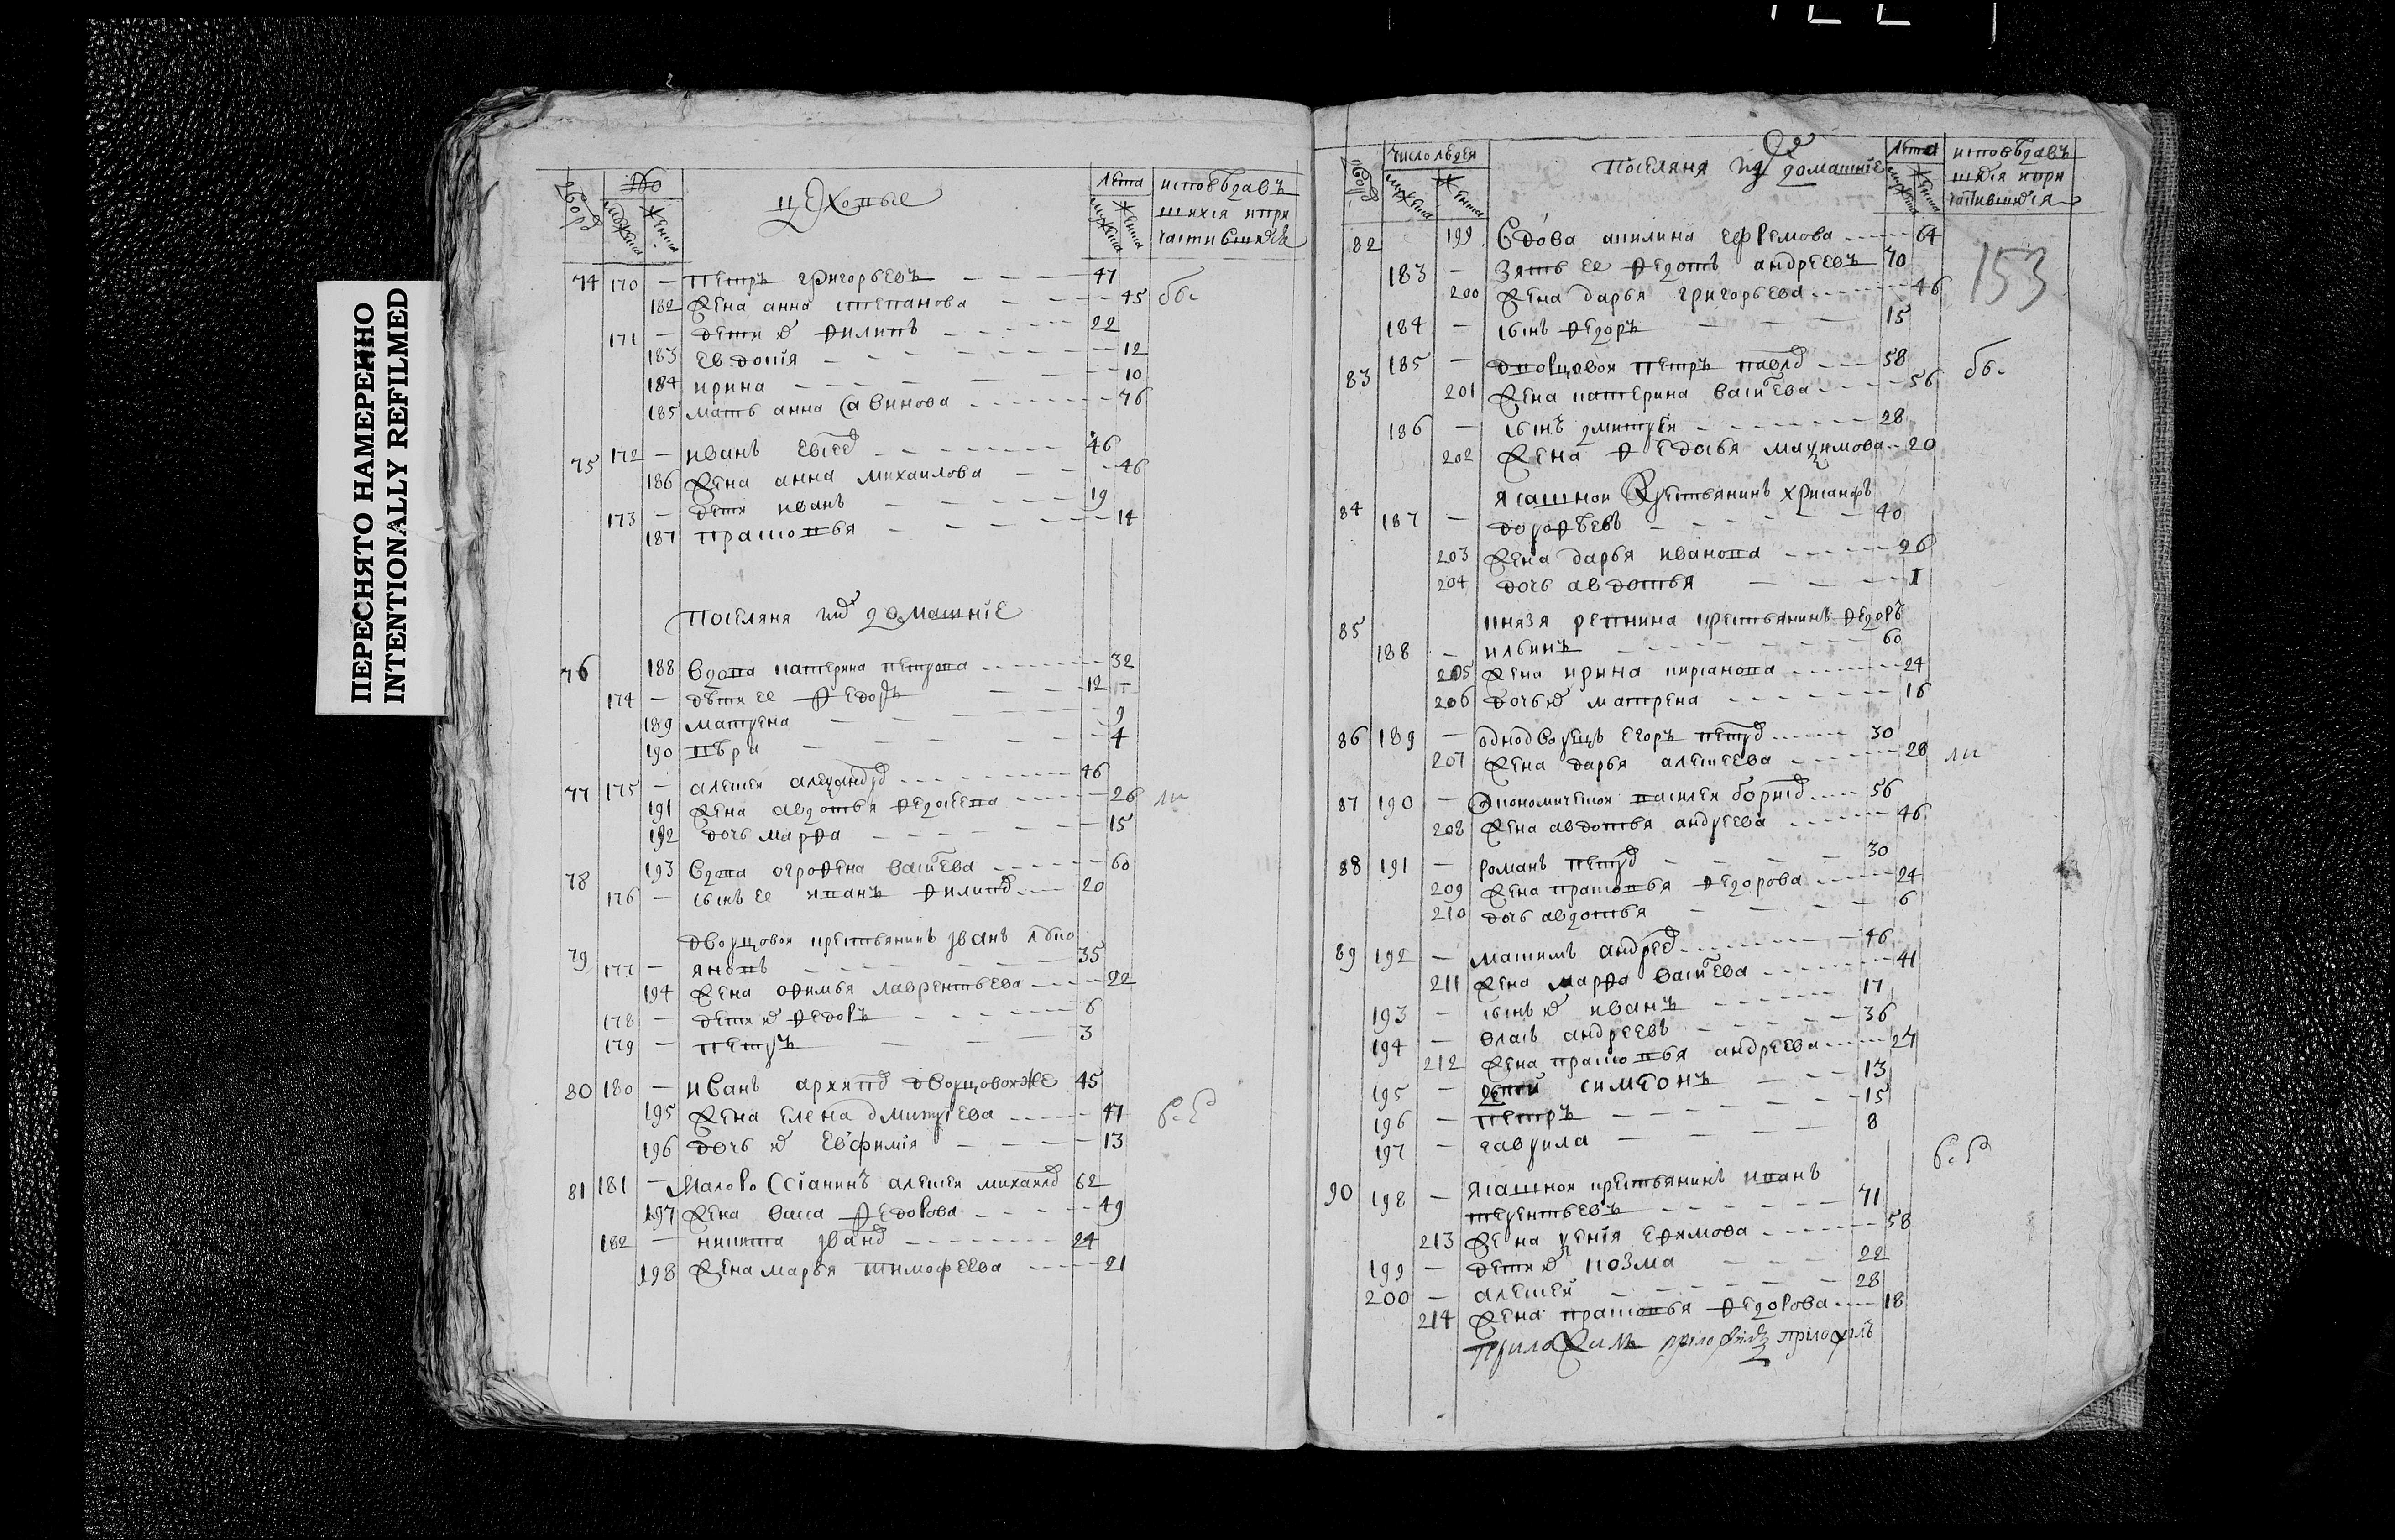 ПЕРЕСНЯТО НАМЕРЕННО
INTENTIONALLY REFILMED
цеховые
лѣта исповѣдавъ
шихся и при
частившихся
74 170 — петръ григорьевъ 47
182 жена анна степанова 45
171 — дети ев филипъ 22
183 евдокія 12
184 ирина 10
185 мать анна савинова 76
75 172 — иванъ евсѣв 46
186 жена анна михаилова 46
173 — дети иванъ 19
187 прасковья 14
поселяня и домашніе
76 188 вдова катерина петрова 32
174 — дѣти ее федоръ 12
189 матрена 9
190 вѣра 4
77 175 — алексеи александров 46
191 жена авдотья федосеева 26
192 дочь марфа 15
78 193 вдова огрофена васильева 60
176 — сынъ ее иванъ филипов 20
дворцовои крестьянинъ иванъ лукі
79 177 — яновъ 35
194 жена офимья лаврентьева 22
178 — дети ев федоръ 6
179 — петръ 3
80 180 — иванъ архипов дворцовои же 45
195 жена елена дмитріева 47
196 дочь ев евфимія 13
81 181 — малороссіанинъ алексеи михаилов 62
197 жена васса федорова 49
182 — никита иванов 24
198 жена марья тимофеева 21
число людеи
поселяня и домашніе
лѣта исповѣдавъ
шихся и при
частившихся
82 199 вдова акилина ефремова 64
153
183 — зять ее федотъ андреевъ 70
200 жена дарья григорьева 46
184 — сынъ федоръ 15
83 185 — дворцовои петръ павлов 58
201 жена катерина васильева 56
186 — сынъ дмитреи 28
202 жена федосья максимова 20
ясашнои крестьянинъ хрисанфъ
84 187 — дорофѣевъ 40
203 жена дарья иванова 26
204 дочь авдотья 1
85 князя репнина крестьянинъ федоръ
188 — ильинъ 60
205 жена ирина кирсанова 24
206 дочь ев матрена 16
86 189 — однодворецъ егоръ петров 30
207 жена дарья алексеева 28
87 190 — экономическои василеи борисов 56
208 жена авдотья андреева 46
88 191 — романъ петров 30
209 жена прасковья федорова 24
210 дочь авдотья 6
89 192 — максимъ андреев 46
211 жена марфа васильева 41
193 — сынъ ев иванъ 17
194 — власъ андреевъ 36
212 жена прасковья андреева 27
195 — симеонъ 13
196 — петръ 15
197 — гаврила 8
90 198 — ясашнои крестьянинъ иванъ
терентьевъ 71
213 жена ксенія ефимова 58
199 — дети ев козма 22
200 — алексеи 28
214 жена прасковья федорова 18
приложилъ